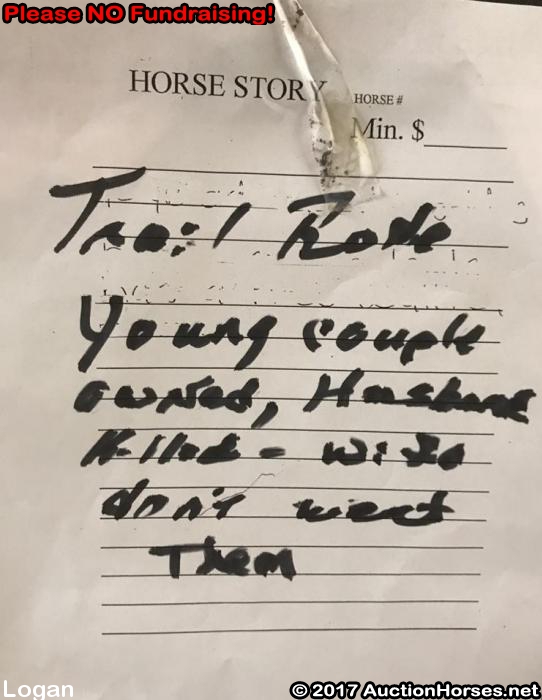 Please NO Fundraising!
HORSE STORY
HORSE #
Min. $
Trail Rode
Young couple
owned, Husband
Killed - wife
don't want
Them
Logan
© 2017 AuctionHorses.net